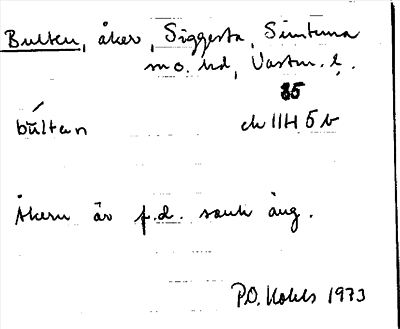 Bulten, åker, Siggesta, Simtuna
sn o. hd, Västm. l.
85
bultan ek 11H 5 b
Åkern är f.d. sank äng.
P.O. 1973